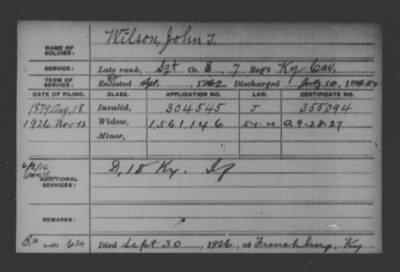 Wilson, John T.
NAME OF SOLDIER:
SERVICE: Late rank, Sgt Co. B, 7 Reg't Ky Cav.
TERM OF SERVICE: Enlisted Sept, 1862 Discharged July 10, 1865
DATE OF FILING. CLASS. APPLICATION NO. LAW. CERTIFICATE NO.
1879 Aug. 18 Invalid, 304545 J 355094
1926 Nov-13 Widow, 1,561,146 A 9-28-27
Minor,
ADDITIONAL SERVICES: D, 15 Ky. Inf
REMARKS:
Died Sept 30, 1926, at Frenchburg, Ky